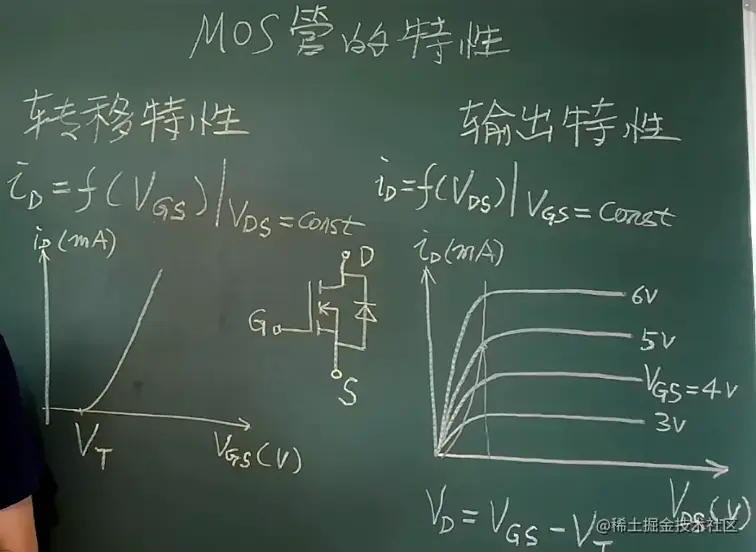 MOS管的特性
转移特性
iD=f(VGS)|VDS=Const
iD(mA)
VT
VGS(V)
D
G
S
输出特性
iD=f(VDS)|VGS=Const
iD(mA)
6V
5V
VGS=4V
3V
VDS(V)
VD=VGS-VT
@稀土掘金技术社区